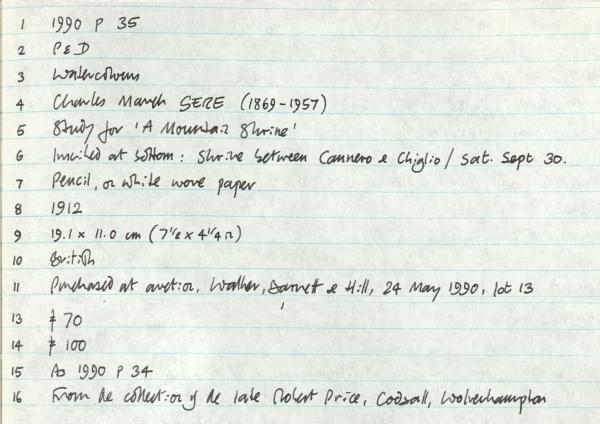 1 1990 P 35
2 P & D
3 Watercolours
4 Charles March GERE (1869-1957)
5 Study for 'A Mountain Shrine'
6 Inscribed at bottom: Shrine between Cannero e Chiglio / Sat. Sept 30.
7 Pencil, on white wove paper
8 1912
9 19.1 x 11.0 cm (7 1/2 x 4 1/4 in)
10 British
11 Purchased at auction, Walker, Barnett & Hill, 24 May 1990, lot 13
13 £ 70
14 £ 100
15 As 1990 P 34
16 From the collection of the late Robert Price, Codsall, Wolverhampton